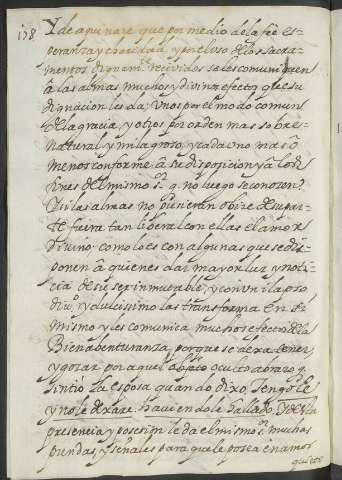 178 Y de aqui naze que por medio de la fee es-
peranza y charidad, y por el uso de los sacra-
mentos dignam.te recividos se les comuniquen
â las almas muchos y divinos efectos que su
dignacion les da; Unos por el modo comun
de la gracia, y otros por orden mas sobre-
natural y milagroso, y cada uno mas ô
menos conforme â su disposicion y â los
fines del mismo s.r q. no luego se conozen.
Y si las almas no pusieran obize de su par-
te fuera tan liberal con ellas el amor
Divino como lo es con algunas que se dis-
ponen â quienes da mayor luz y noti-
cia de su ser inmutable, y con un ilapso
div.o y dulcissimo las transforma en si
mismo y les comunica muchos efectos de la
Bienabenturanza, porque se dexa tener
y gozar por aquel oculto abrazo q.
sintió la esposa quando dixo, Tengole
y no le dexare haviendole hallado. De esta
presencia y posesion le da el mismo s.r muchas
prendas, y señales para que le posea en amor
quieto